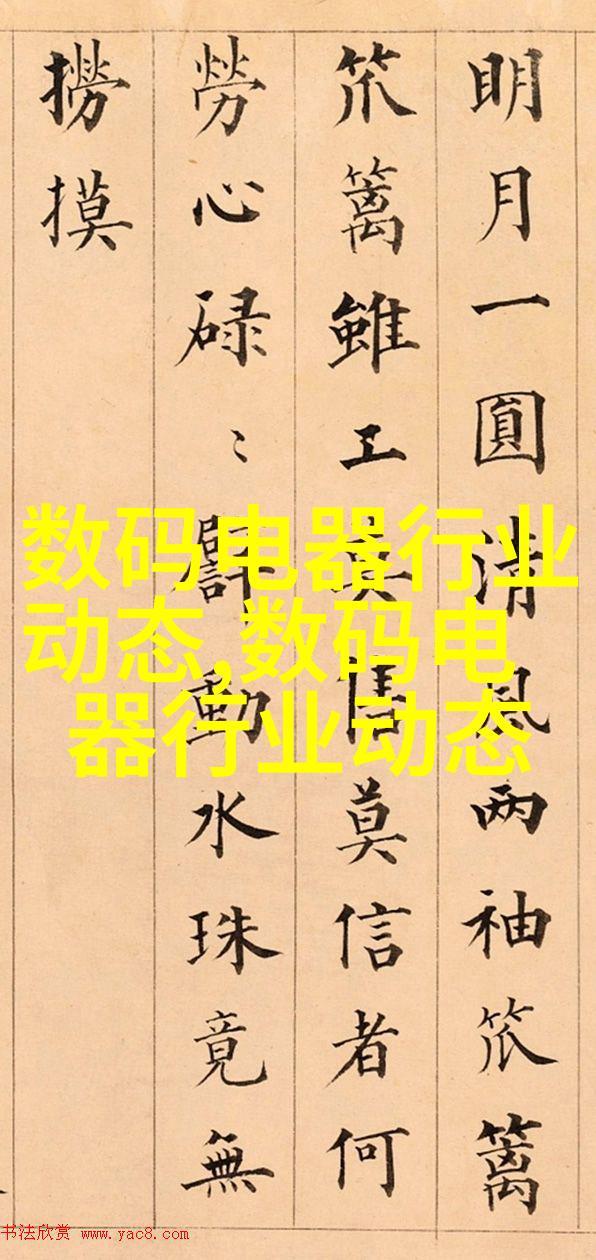 明月一圓清風两袖笊篱
笊篱雖工莫信莫信者何
勞心碌〻闢動水珠竟無
撈摸
数码电器行业
动态,数码电
器行业动态
书法欣赏 www.yac8.com